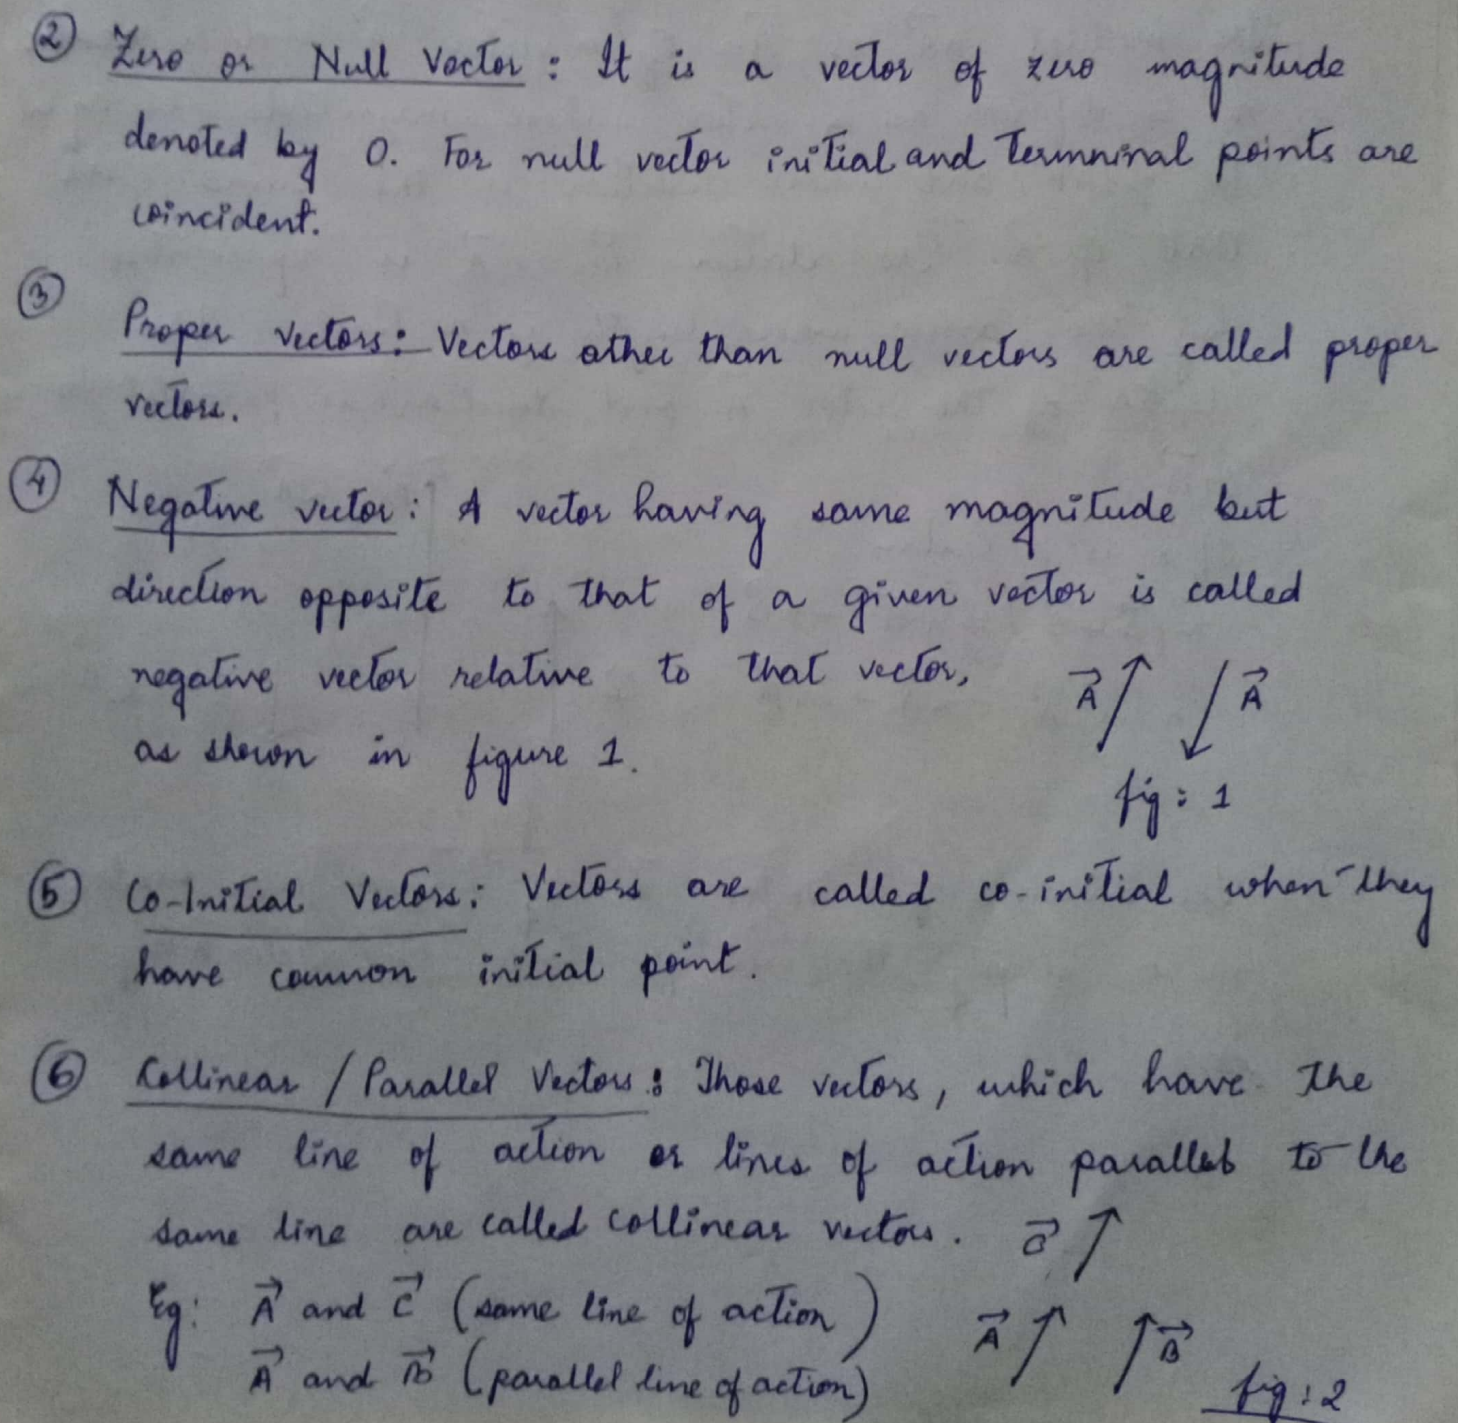 ② Zero or Null Vector : It is a vector of zero magnitude
denoted by 0. For null vector initial and termninal points are
coincident.
③ Proper vectors: Vectors other than null vectors are called proper
vectors.
④ Negative vector: A vector having same magnitude but
direction opposite to that of a given vector is called
negative vector relative to that vector,
as shown in figure 1.
A⃗ A⃗
fig: 1
⑤ Co-Initial Vectors: Vectors are called co-initial when they
have common initial point.
⑥ Collinear / Parallel Vectors: Those vectors, which have the
same line of action or lines of action parallel to the
same line are called collinear vectors.
C⃗
Eg: A⃗ and C⃗ (same line of action)
A⃗ and B⃗ (parallel line of action)
A⃗ B⃗
fig: 2